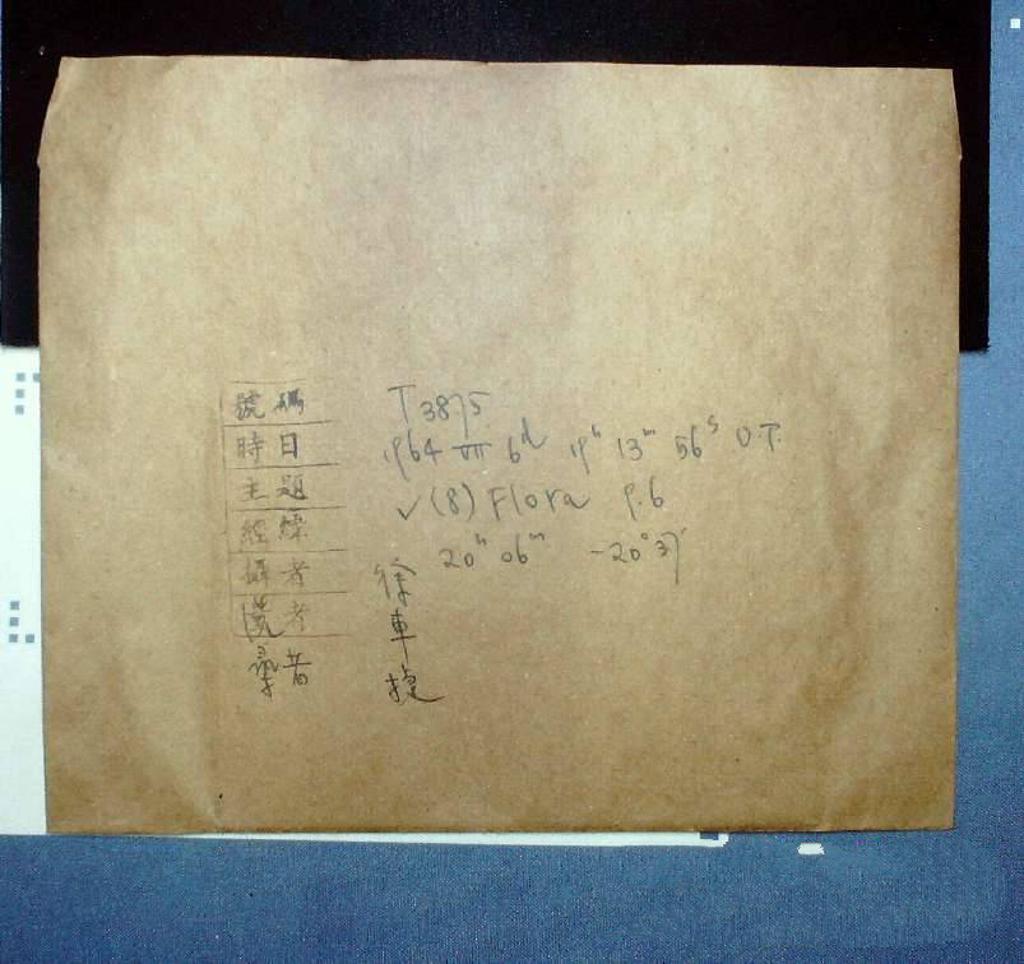 號碼 T 3875
時日 1964 VII 6d 19h 13m 56s U.T.
主題 ✓(8) Flora 9.6
經緯 20h 06m -20° 37'
攝者 徐
者 車
者 捷